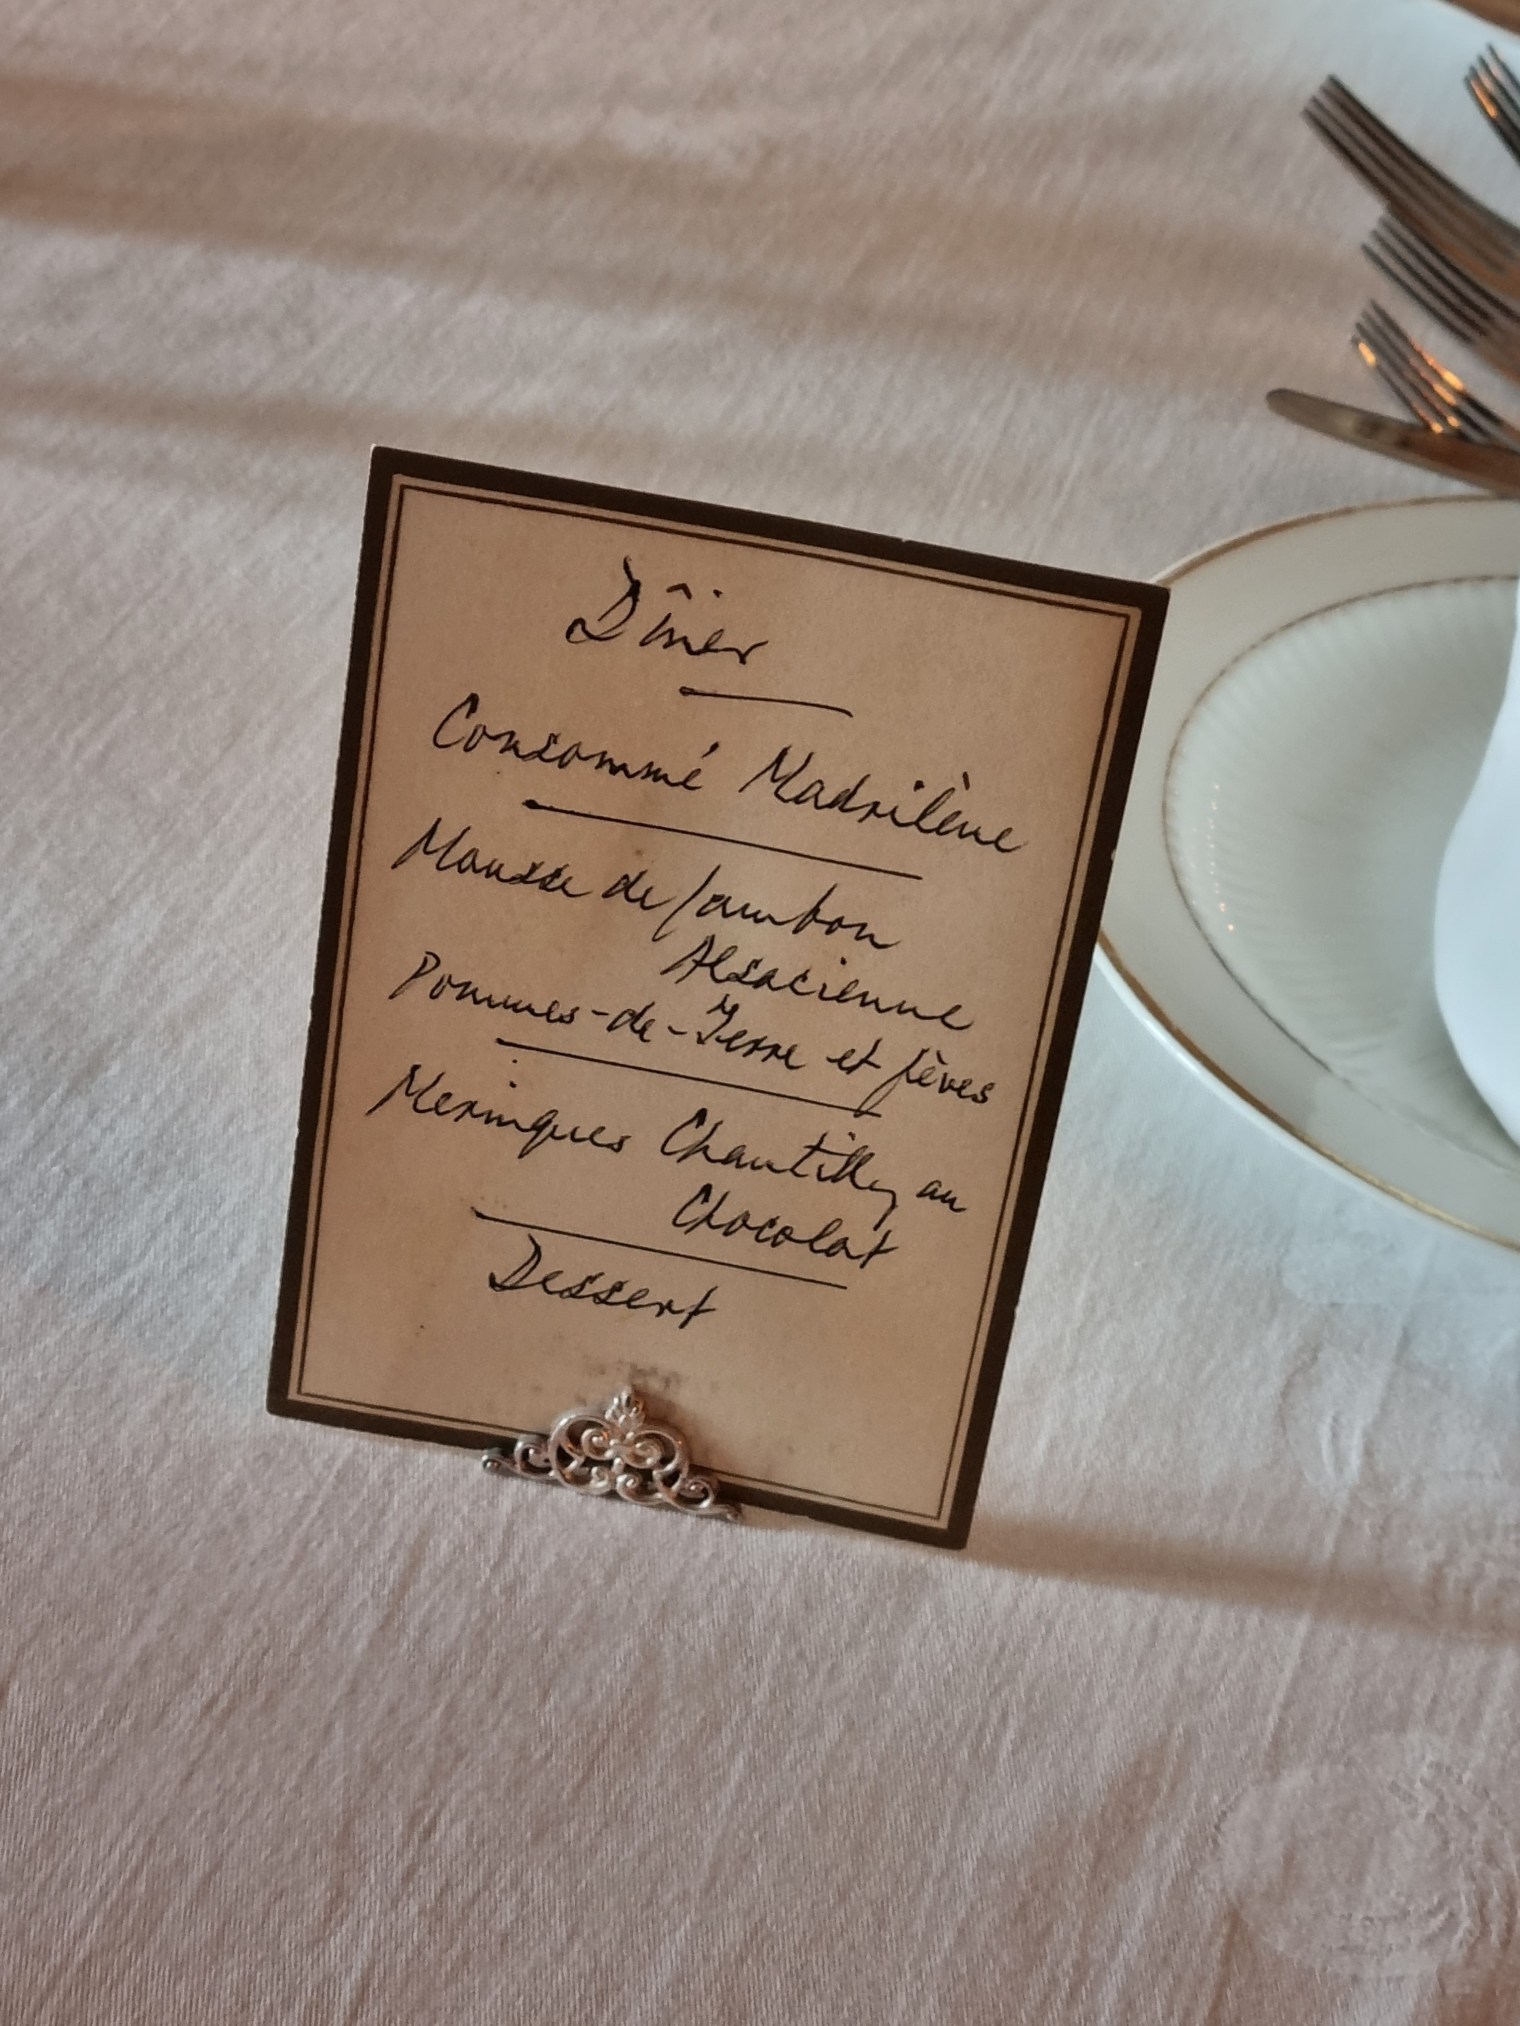 Dîner
Consommé Madrilène
Mousse de Jambon
Alsacienne
Pommes-de-Terre et fèves
Meringues Chantilly au
Chocolat
Dessert